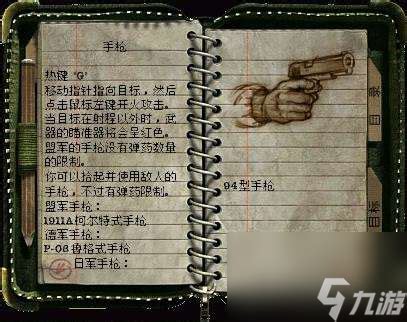 手枪
热键 'G'
移动指针指向目标，然后
点击鼠标左键开火攻击。
当目标在射程以外时，武
器的瞄准器将会呈红色。
盟军的手枪没有弹药数量
的限制。
你可以拾起并使用敌人的
手枪，不过有弹药限制。
盟军手枪：
1911A柯尔特式手枪
德军手枪：
P-08鲁格式手枪
日军手枪：
94型手枪
目录
目标
九游